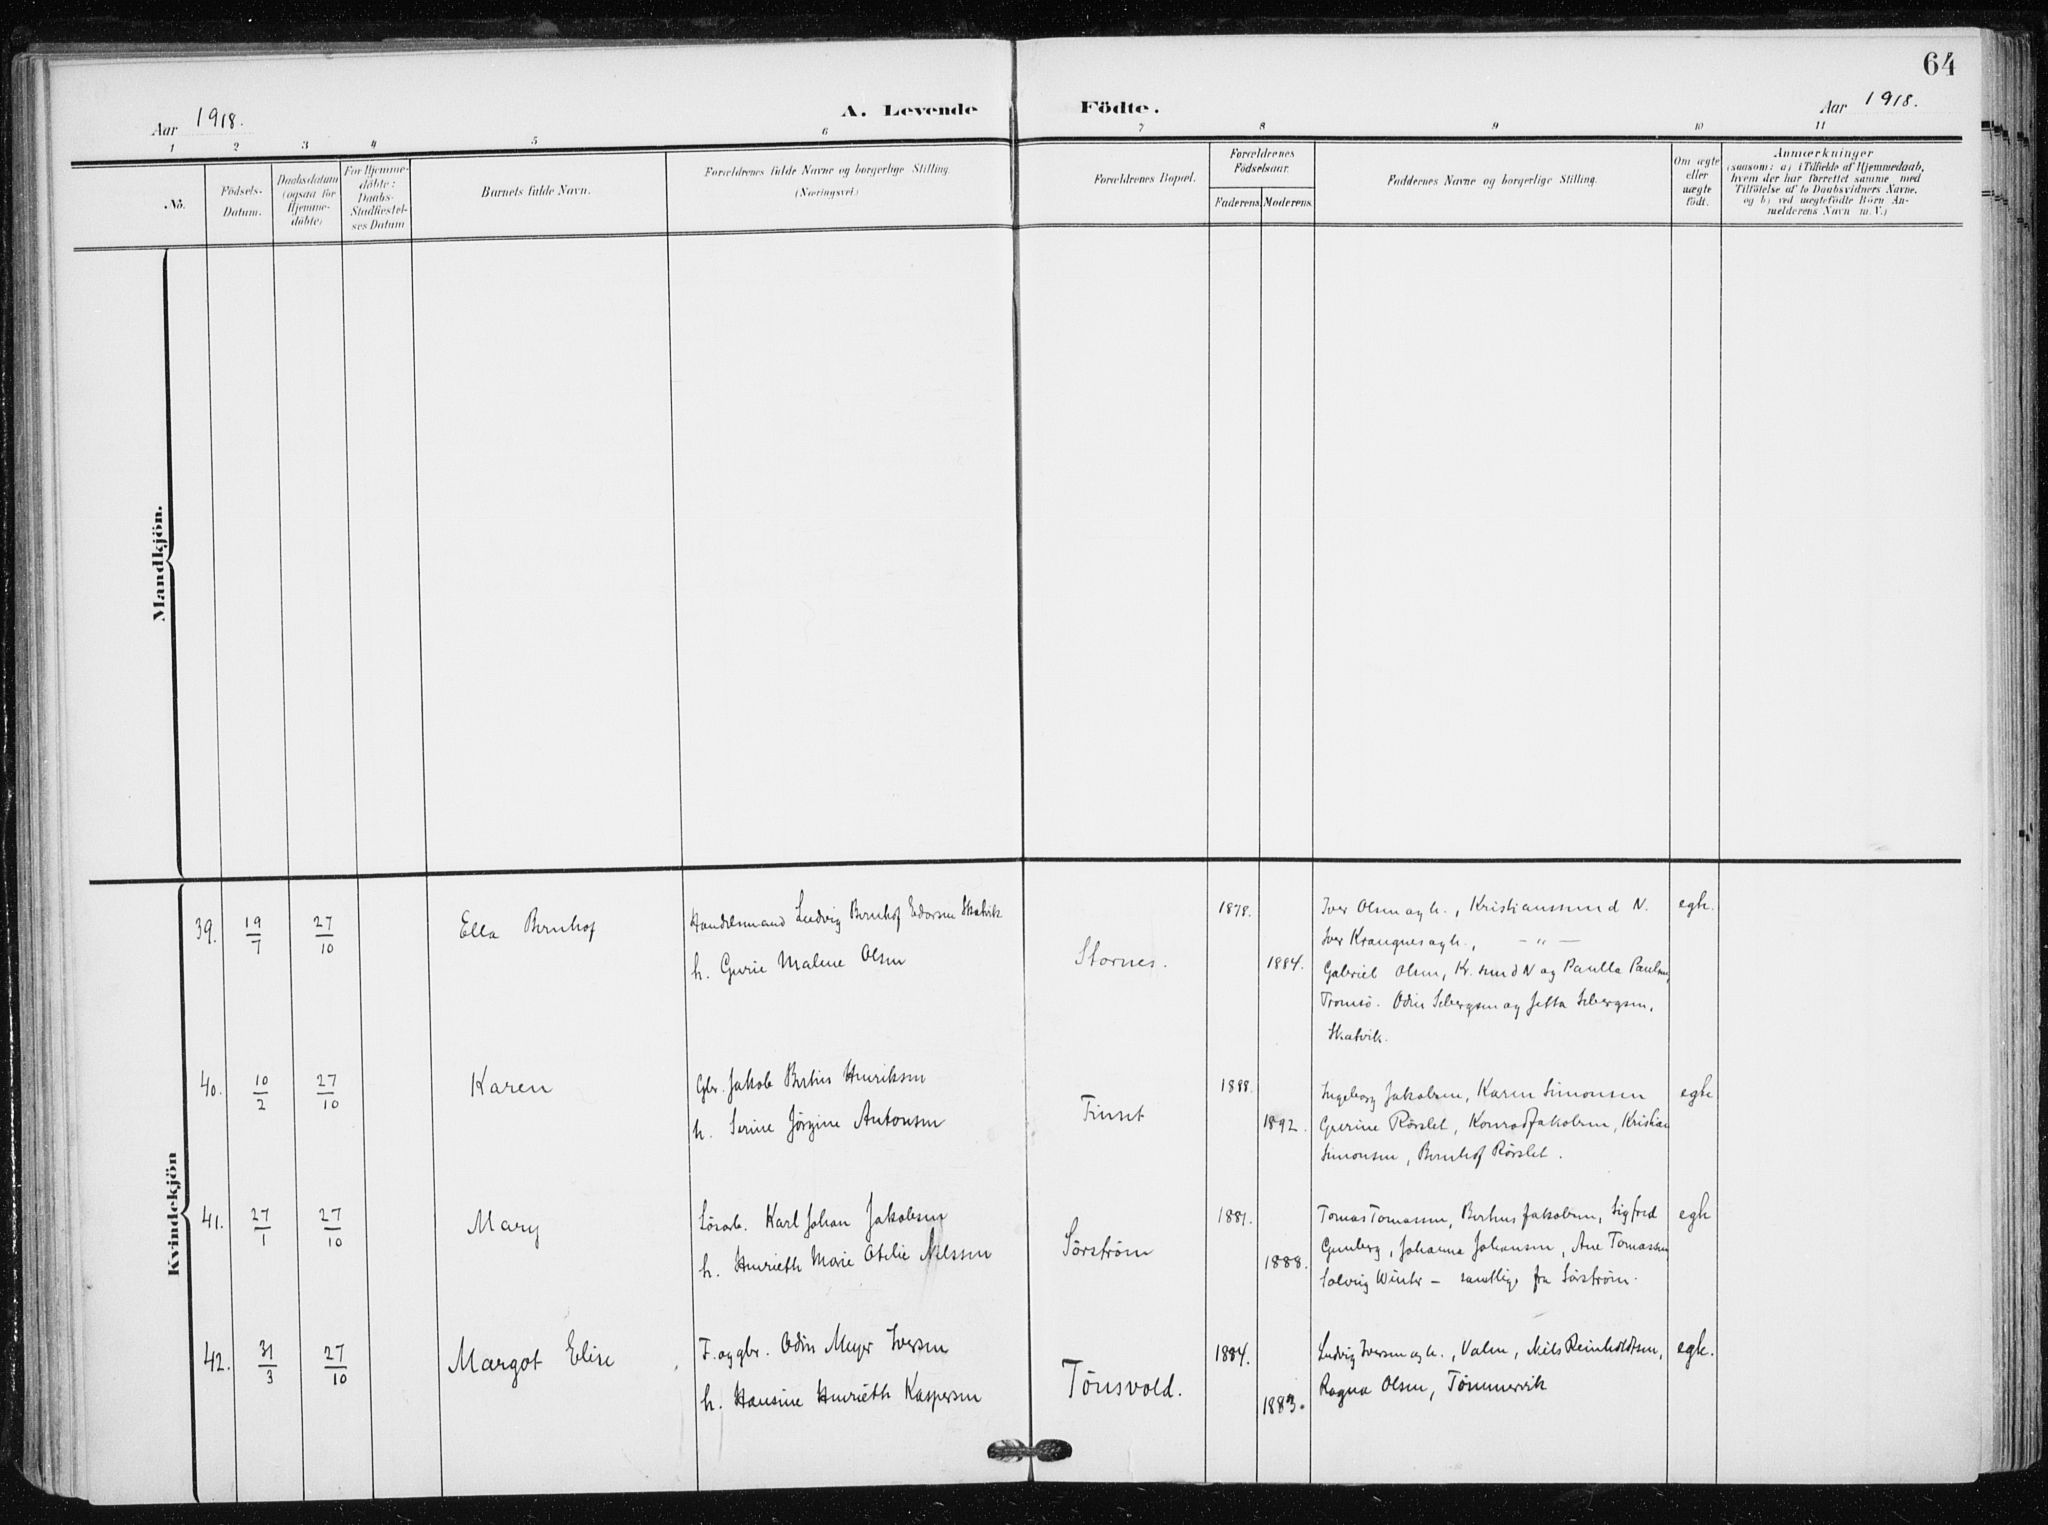 64
Aar 1918.
A. Levende Födte.
Aar 1918.
1 2 3 4 5 6 7 8 9 10 11
No.
Födsels-Datum.
Daabsdatum (ogsaa for Hjemme-döbte)
For Hjemme-döbte: Daabs-Stadfæstel-ses Datum
Barnets fulde Navn.
Forældrenes fulde Navne og borgerlige Stilling. (Næringsvei)
Forældrenes Bopæl.
Forældrenes Födselsaar.
Faderens. Moderens.
Faddernes Navne og borgerlige Stilling.
Om ægte eller uægte födt.
Anmærkninger
(saasom: a) i Tilfælde af Hjemmedaab,
hvem der har forrettet samme med
Tilföielse af to Daabsvidners Navne.
og b) ved uægtefödte Börn An-
melderens Navn m. V.)
Mandkjön.
Kvindekjön
39. 19/7 27/10 Ella Bernhof
Handelsmand Ludvig Bernhof Edorsen Skatvik
h. Gurie Malene Olsen
Stornes.
1878.
1884.
Iver Olsen og h., Kristianssund N.
Iver Krangnes og h., – " –
Gabriel Olsen, Kr.sund N og Paulla Paulsen,
Tromsö. Odin Sebergsen og Jetta Sebergsen,
Skatvik.
egte.
40. 10/2 27/10 Karen
Gbr. Jakob Bertius Henriksen
h. Serine Jørgine Antonsen
Finset
1888.
1892.
Ingeborg Jakobsen, Karen Simonsen
Gurine Rørslet, Konrad Jakobsen, Kristian
Simonsen, Bernhof Rørslet.
egte
41. 27/1 27/10 Mary
Løsarb. Karl Johan Jakobsen
h. Henrieth Marie Otelie Nilssen
Sørstrøm
1881.
1888.
Tomas Tomassen, Bertius Jakobsen, Sigfred
Gunberg, Johanna Johansen, Ane Tomassen
Solveig Winter – samtlige fra Sørstrøm.
egte
42. 31/3 27/10 Margot Elise
F. og gbr. Odin Meyer Iversen
h. Hansine Henrieth Kaspersen
Tönsvold.
1884.
1883.
Ludvig Iversen og h., Valen, Nils Reinholdtsen,
Ragna Olsen, Tömmervik
egte.